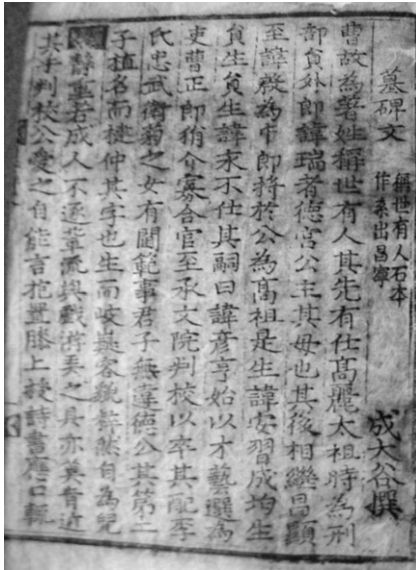 墓碑文
稱世有人石本
作系出昌寧
成大谷撰
曹故為著姓稱世有人其先有仕高麗太祖時為刑
部貟外郎諱瑞者德宮公主其母也其後相繼昌顯
至諱殷為中郎將於公為高祖是生諱安習成均生
貟生貟生諱永不仕其嗣曰諱彦亨始以才藝選為
吏曹正郎狷介寡合官至承文院判校以卒其配李
氏忠武衛菊之女有閫範事君子無違德公其第二
子植名而楗仲其字也生而岐嶷容貌粹然自為兒
靜重若成人不逐輩流與戲游弄之具亦莫肯近
其手判校公愛之自能言抱置膝上授詩書應口輒